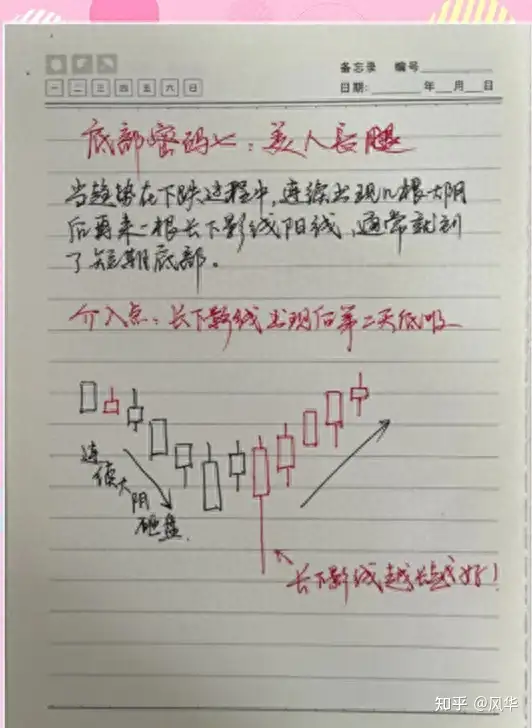 备忘录 编号
一 二 三 四 五 六 日
日期: 年 月 日
底部密码七：美人长腿
当趋势在下跌过程中,连续出现几根大阴
后再来一根长下影线阳线，通常就到
了短期底部。
介入点：长下影线出现后第二天低吸
连续大阴
砸盘
长下影线越长越好！
知乎 @风华